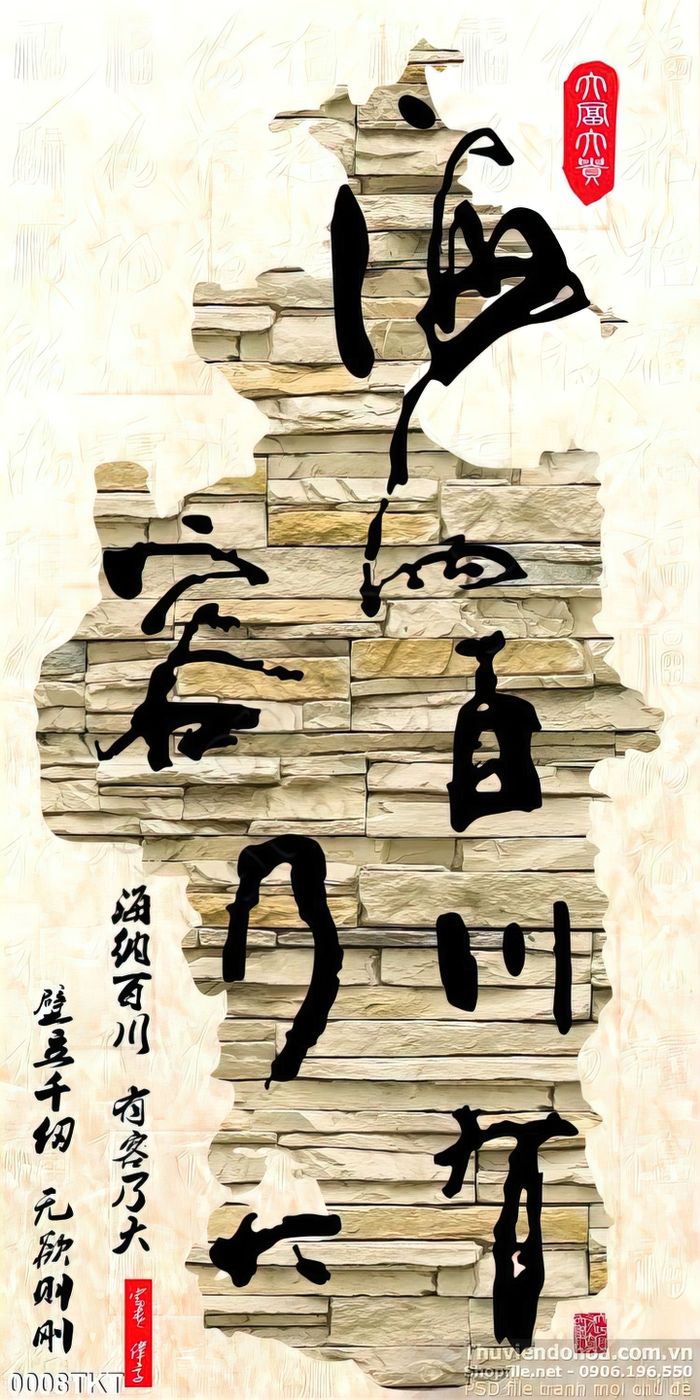 大富大貴
海纳百川有
容乃大
海纳百川 有容乃大
壁立千仞 无欲则刚
0008TKT
Thuviendohoa.com.vn
Shopfile.net - 0906.196.550
PSD file tranh mọi chủ đề